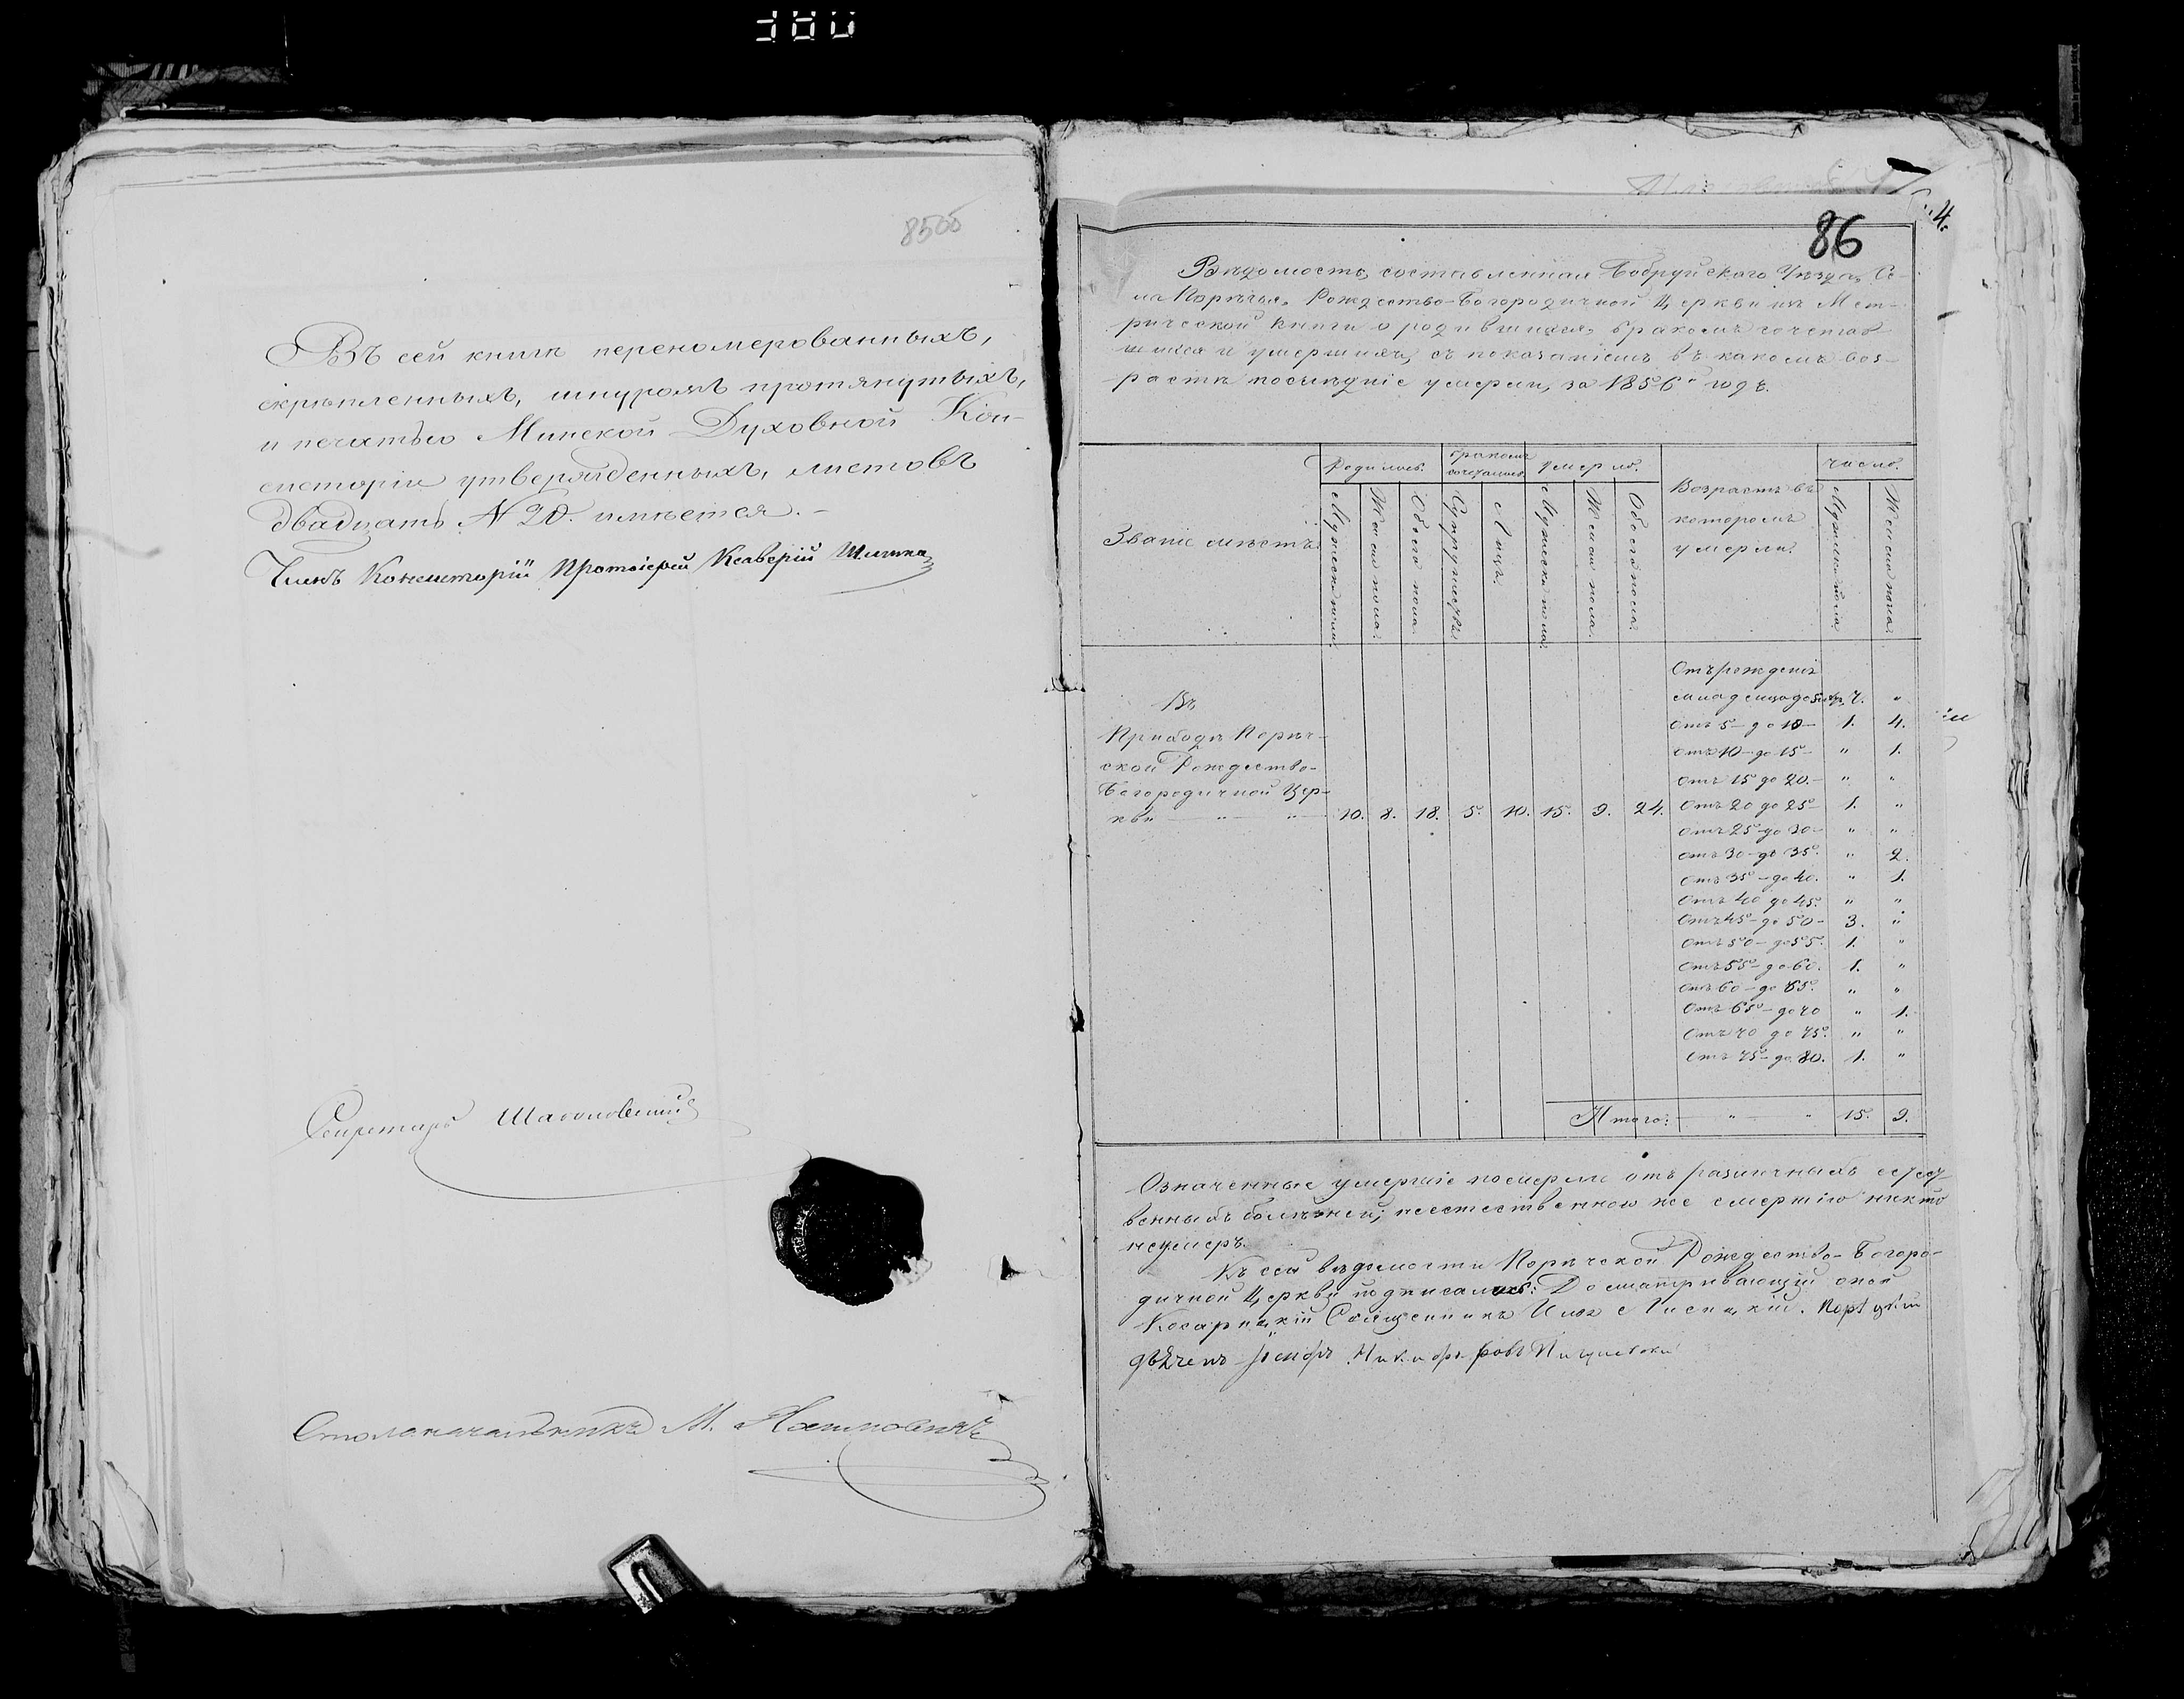 380
85об
Въ сей книгѣ переномерованныхъ,
скрѣпленныхъ, шнуромъ протянутыхъ,
и печатью Минской Духовной Кон-
систоріи утвержденныхъ, листовъ
двадцать № 20. имѣется.
Членъ Консисторіи Протоіерей Ксаверій
Секретарь
Столоначальникъ М.
86
4.
Вѣдомость, составленная Бобруйскаго Уѣзда, Се-
ла Порѣчья, Рождество-Богородичной Церкви изъ Мет-
рической книги о родившихся, бракомъ сочетав-
шихся и умершихъ, съ показаніемъ въ какомъ воз-
растѣ послѣдніе умерли, за 1856й годъ.
Званіе мѣстъ.
Родилось.
Бракомъ сочеталось
Умерло.
Возрастъ въ
которомъ
умерли.
Число.
Мужеска пола.
Женска пола.
Обоего пола.
Супружествъ
Лицъ.
Мужеска пола.
Женска пола.
Обоего пола.
Мужеска пола.
Женска пола.
Въ
Приходѣ Порѣч-
ской Рождество-
Богородичной Цер-
кви — " — " 10. 8. 18. 5. 10. 15. 9. 24.
Отъ рожденія
младенца до 5 7. "
Отъ 5 — до 10 — 1. 4.
Отъ 10 — до 15 — " 1.
Отъ 15 до 20. — " "
Отъ 20 до 25 — 1. "
Отъ 25 — до 30 — " "
Отъ 30 — до 35. " 2.
Отъ 35 — до 40. " 1.
Отъ 40 до 45. " "
Отъ 45 — до 50 — 3. "
Отъ 50 — до 55. 1. "
Отъ 55 — до 60. 1. "
Отъ 60 — до 65. " "
Отъ 65 — до 70 " 1.
Отъ 70 до 75. " "
Отъ 75 — до 80. 1. "
Итого: — " — " 15. 9.
Означенные умершіе померли отъ различныхъ
болѣзней; неестественною же смертію никто
неумеръ.
Къ сей вѣдомости Порѣчской Рождество-Богоро-
дичной Церкви подписались: Досматривающій оной
Священникъ Илья